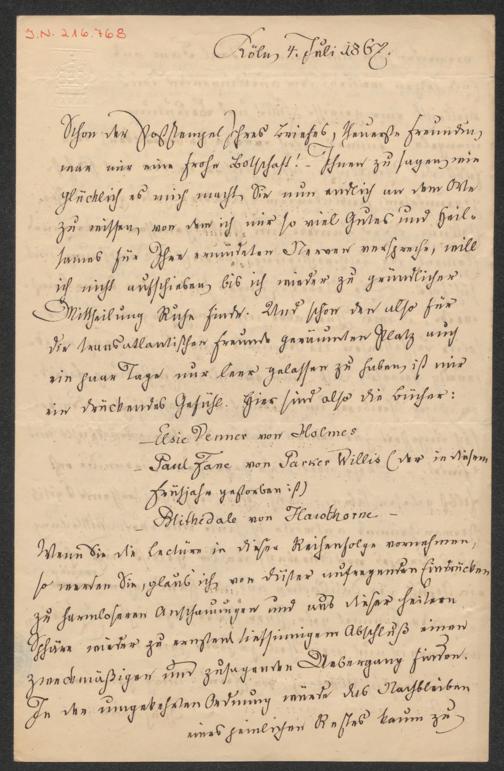 I.N. 216.768
Köln, 4. Juli 1867.
Schon der Poststempel Ihres Briefes, theuerste Freundin,
war mir eine frohe Botschaft! – Ihnen zu sagen, wie
glücklich es mich macht, Sie nun endlich an dem Orte
zu wissen, von dem ich mir so viel Gutes und Heil-
sames für Ihre ermüdeten Nerven verspreche, will
ich nicht aufschieben, bis ich wieder zu gründlicher
Mittheilung Ruhe finde. Und schon den also für
die transatlantischen Freunde geräumten Platz auch
ein paar Tage nur leer gelassen zu haben, ist mir
ein drückendes Gefühl. Hier sind also die Bücher:
– Elsie Venner von Holmes
– Paul Fane von Parker Willis (der in diesem
Frühjahr gestorben ist)
– Blithedale von Hawthorne –
Wenn Sie die Lectüre in dieser Reihenfolge vornehmen,
so werden Sie, glaub' ich, von düster aufregenden Eindrücken
zu harmloseren Anschauungen und aus dieser heitern
Sphäre wieder zu ernstem tiefsinnigem Abschluß einen
zweckmäßigen und zusagenden Uebergang finden.
In der umgekehrten Ordnung würde das Nachbleiben
eines peinlichen Restes kaum zu